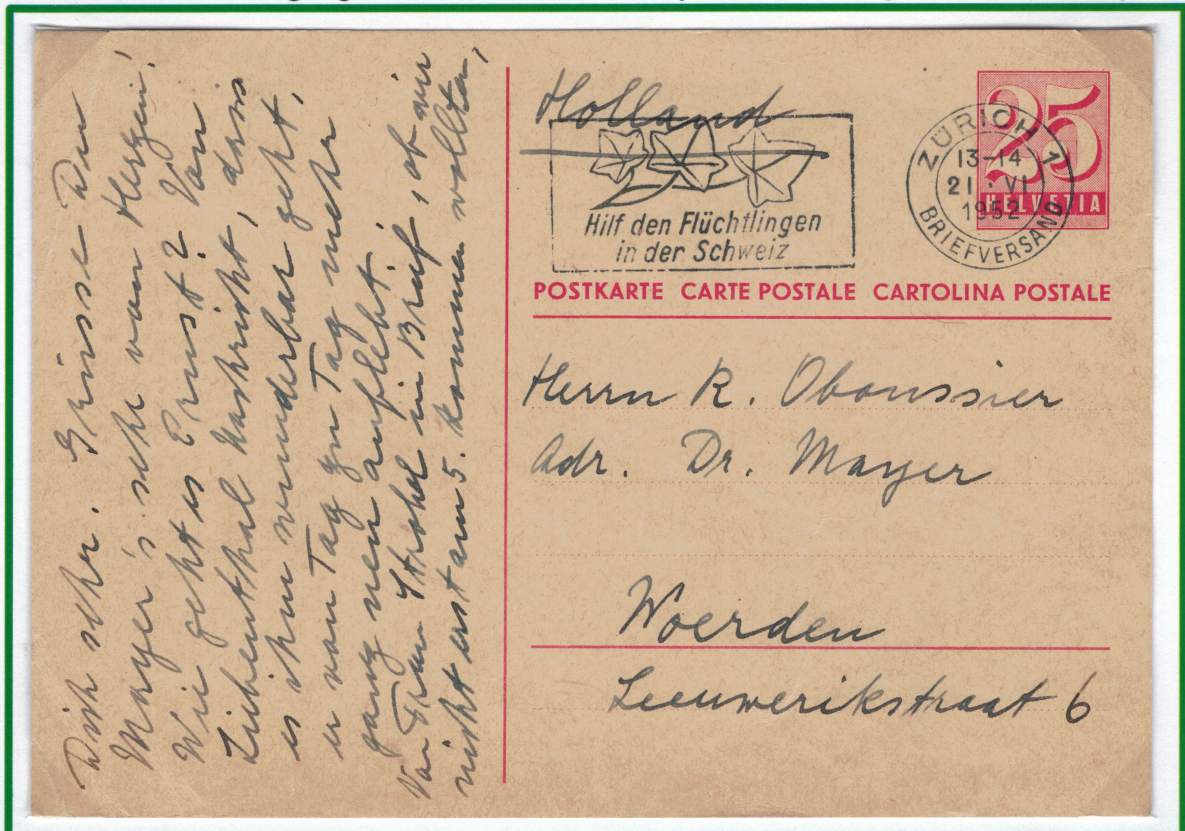 Dich sehr. Grüsse Du
Mayer's sehr von Herzen!
Wie geht es Ernst? Von
Liebenthal Nachricht, dass
es ihm wunderbar geht,
er von Tag zu Tag mehr
ganz neu auflebt.
Von Frau ein Brief, ob wir
nicht erst am 5. kommen wollten,
Holland
Hilf den Flüchtlingen
in der Schweiz
ZÜRICH 1
13-14
21. VI
1952
BRIEFVERSAND
25
HELVETIA
POSTKARTE CARTE POSTALE CARTOLINA POSTALE
Herrn R. Oboussier
Adr. Dr. Mayer
Woerden
Leeuwerikstraat 6